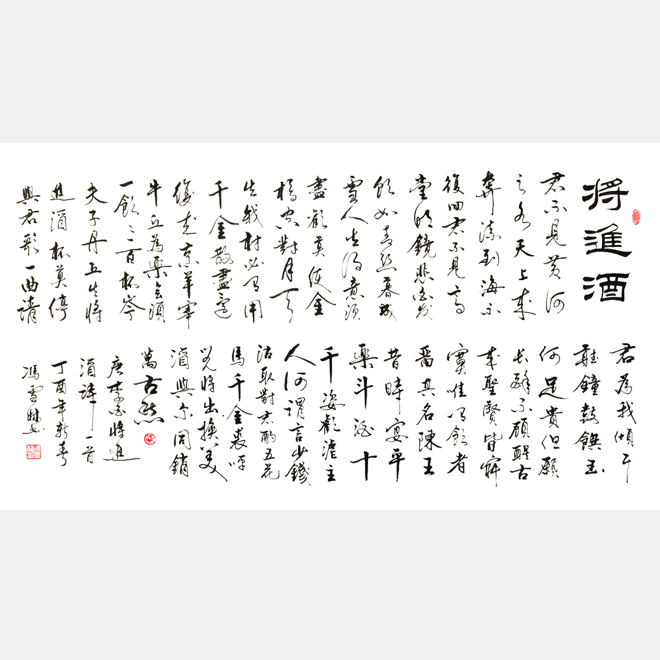 将進酒
君不見黄河
之水天上来
奔流到海不
復回君不見高
堂明鏡悲白发
朝如青丝暮成
雪人生得意须
盡歡莫使金
樽空對月天
生我材必有用
千金散盡還
復来烹羊宰
牛且為樂會須
一飲三百杯岑
夫子丹丘生将
進酒杯莫停
與君歌一曲請
君為我傾耳
聽鐘鼓饌玉
何足貴但願
长醉不願醒古
来聖賢皆寂
寞唯有飲者
留其名陳王
昔時宴平
樂斗酒十
千恣歡謔主
人何謂言少錢
沽取對君酌五花
馬千金裘呼
兒将出換美
酒與尔同銷
萬古愁
唐李白将進
酒詩一首
丁酉年新春
馮雪